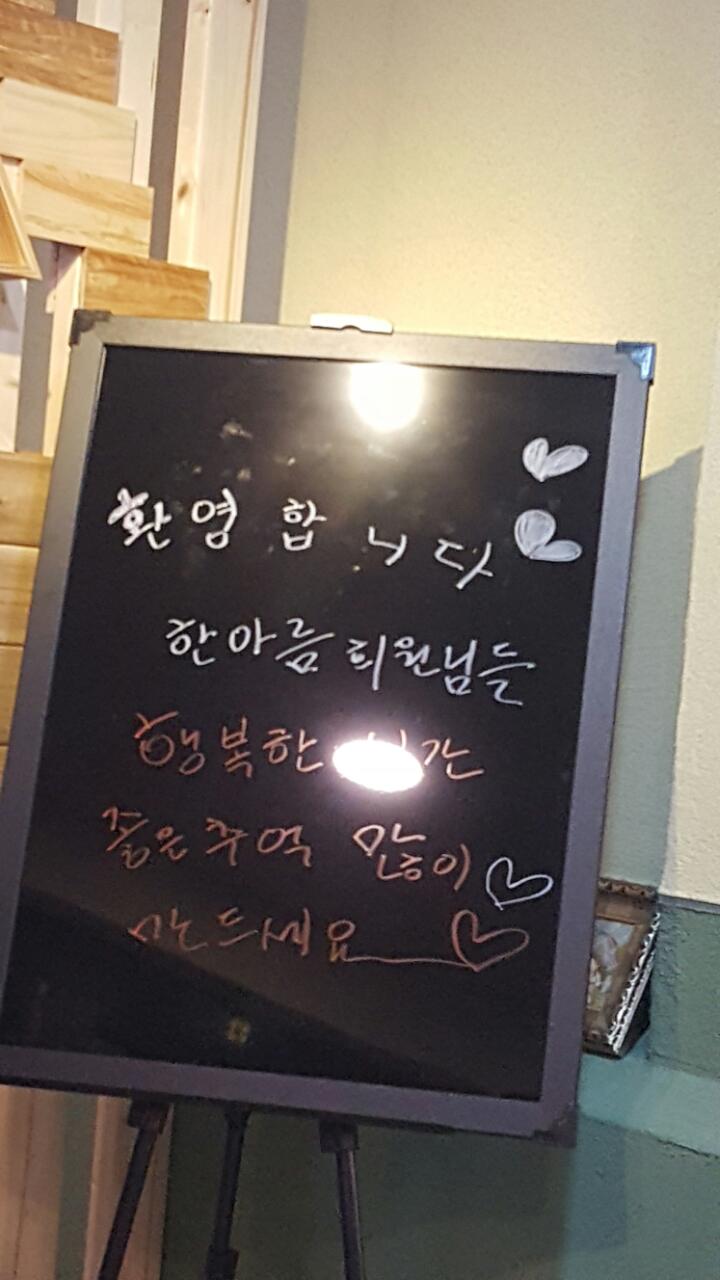 환영합니다
한아름 회원님들
행복한
좋은 추억 많이
만드세요